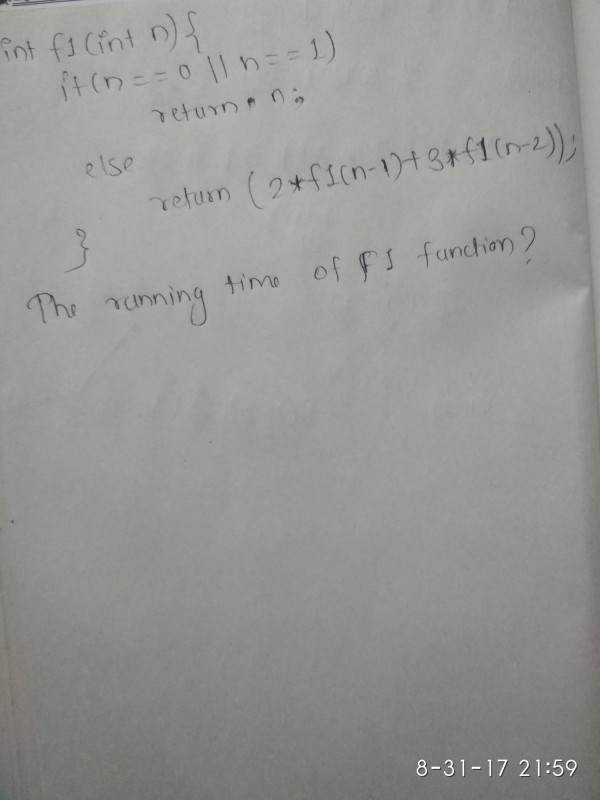 int f1(int n){
if(n==0 || n==1)
return n;
else
return (2*f1(n-1)+3*f1(n-2));
}
The running time of F1 function?
8-31-17 21:59